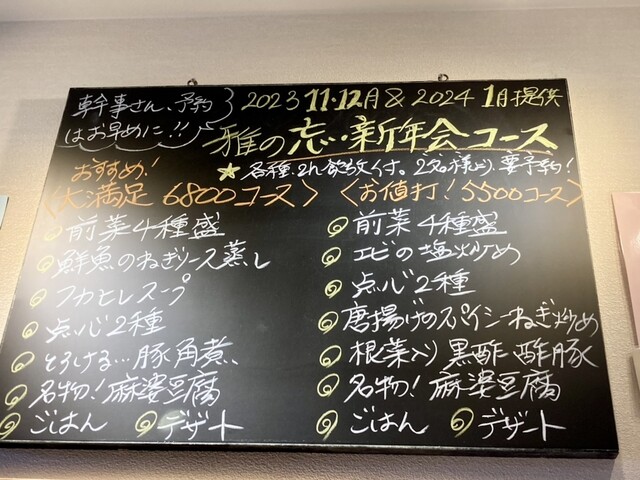 幹事さん、予約
はお早めに!!
2023 11・12月 & 2024 1月提供
雅の忘・新年会コース
★各種2h飲放くす。2名様より要予約!
おすすめ!
〈大満足 6800コース〉
前菜4種盛
鮮魚のねぎソース蒸し
フカヒレスープ
点心2種
とろける…豚角煮、、
名物!麻婆豆腐
ごはん
デザート
〈お値打!5500コース〉
前菜4種盛
エビの塩炒め
点心2種
唐揚げのスパイシーねぎ炒め
根菜入り黒酢酢豚
名物!麻婆豆腐
ごはん
デザート